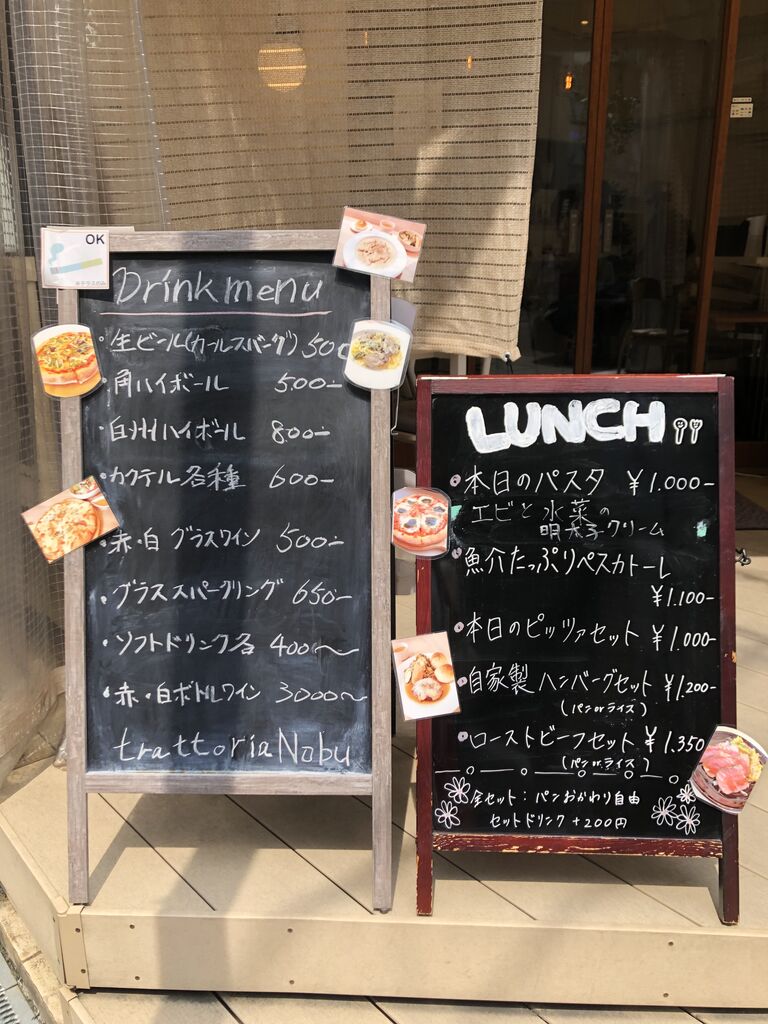 OK
Drink menu
・生ビール(カールスバーグ) 500
・角ハイボール 500-
・白州ハイボール 800-
・カクテル各種 600-
・赤・白 グラスワイン 500-
・グラススパークリング 650-
・ソフトドリンク各 400〜
・赤・白ボトルワイン 3000〜
trattoria Nobu
LUNCH
・本日のパスタ ¥1.000-
エビと水菜の
明太子クリーム
・魚介たっぷりペスカトーレ
¥1.100-
・本日のピッツァセット ¥1.000-
・自家製ハンバーグセット ¥1.200-
(パンorライス)
・ローストビーフセット ¥1.350
(パンorライス)
全セット：パンおかわり自由
セットドリンク +200円